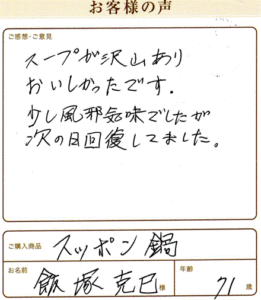 お客様の声
ご感想・ご意見
スープが沢山あり
おいしかったです.
少し風邪気味でしたが
次の日回復してました。
ご購入商品 スッポン鍋
お名前 飯塚克巳 様 年齢 71 歳